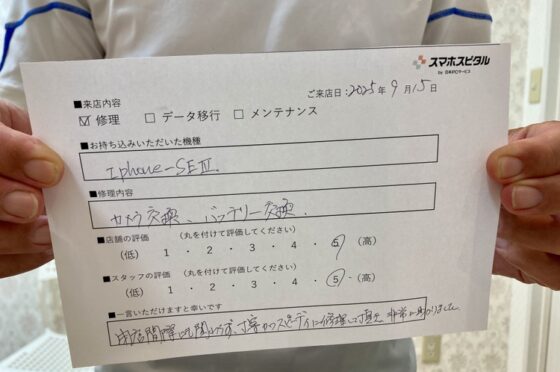 スマホスピタル
by 日本PCサービス
ご来店日:2025年9月15日
■来店内容
☑ 修理 □ データ移行 □ メンテナンス
■お持ち込みいただいた機種
Iphone-SEⅢ
■修理内容
カメラ交換、バッテリー交換、
■店舗の評価 (丸を付けて評価してください)
(低) 1 ・ 2 ・ 3 ・ 4 ・ 5 (高)
■スタッフの評価 (丸を付けて評価してください)
(低) 1 ・ 2 ・ 3 ・ 4 ・ 5 ・ (高)
■一言いただけますと幸いです
閉店間際にも関わらず、丁寧かつスピーディに修理して頂き、非常に助かりました。